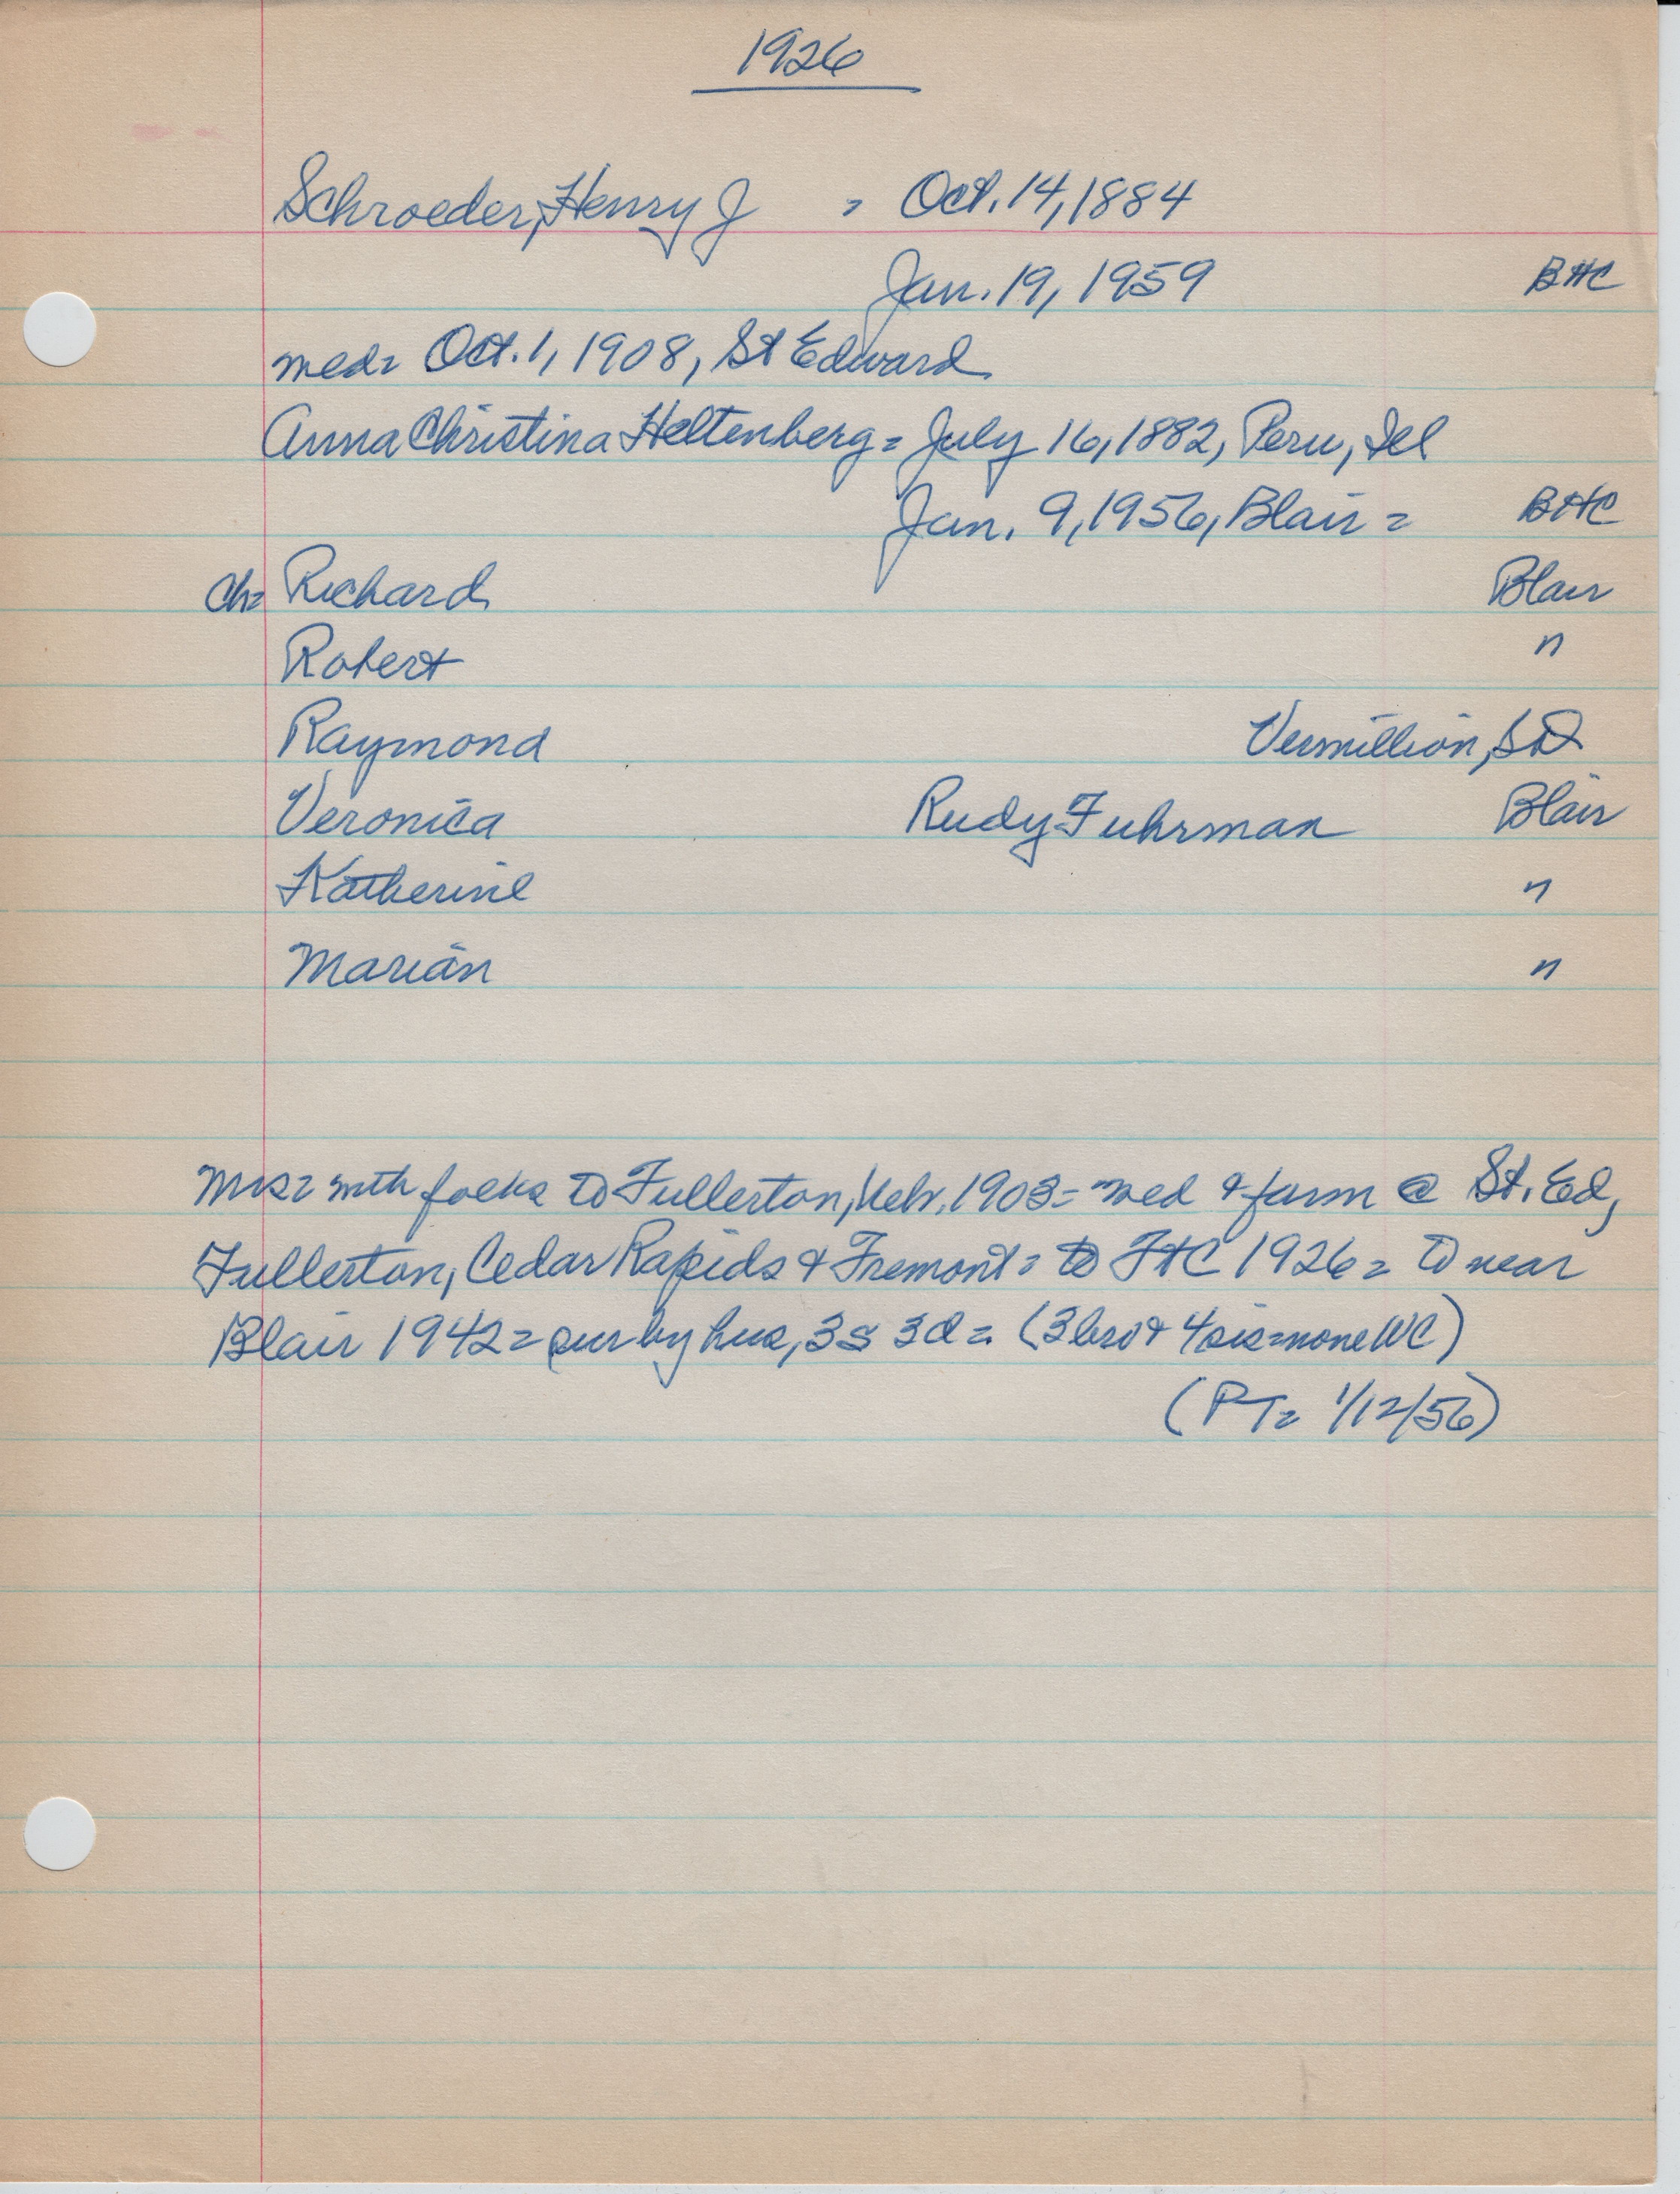 1926
Schroeder, Henry J = Oct. 14, 1884
Jan. 19, 1959 BHC
med= Oct. 1, 1908, St Edward
Anna Christina Heltenberg = July 16, 1882, Peru, Ill
Jan. 9, 1956, Blair = BHC
Ch= Richard Blair
Robert "
Raymond Vermillion, SD
Veronica Rudy Fuhrman Blair
Katherine "
Marian "
Mrs= with folks to Fullerton, Nebr. 1903= med & farm @ St. Ed,
Fullerton, Cedar Rapids & Fremont= to FtC 1926= to near
Blair 1942= sur by hus, 3s 3d= (3 bro & 4 sis=none WC)
(PT= 1/12/56)